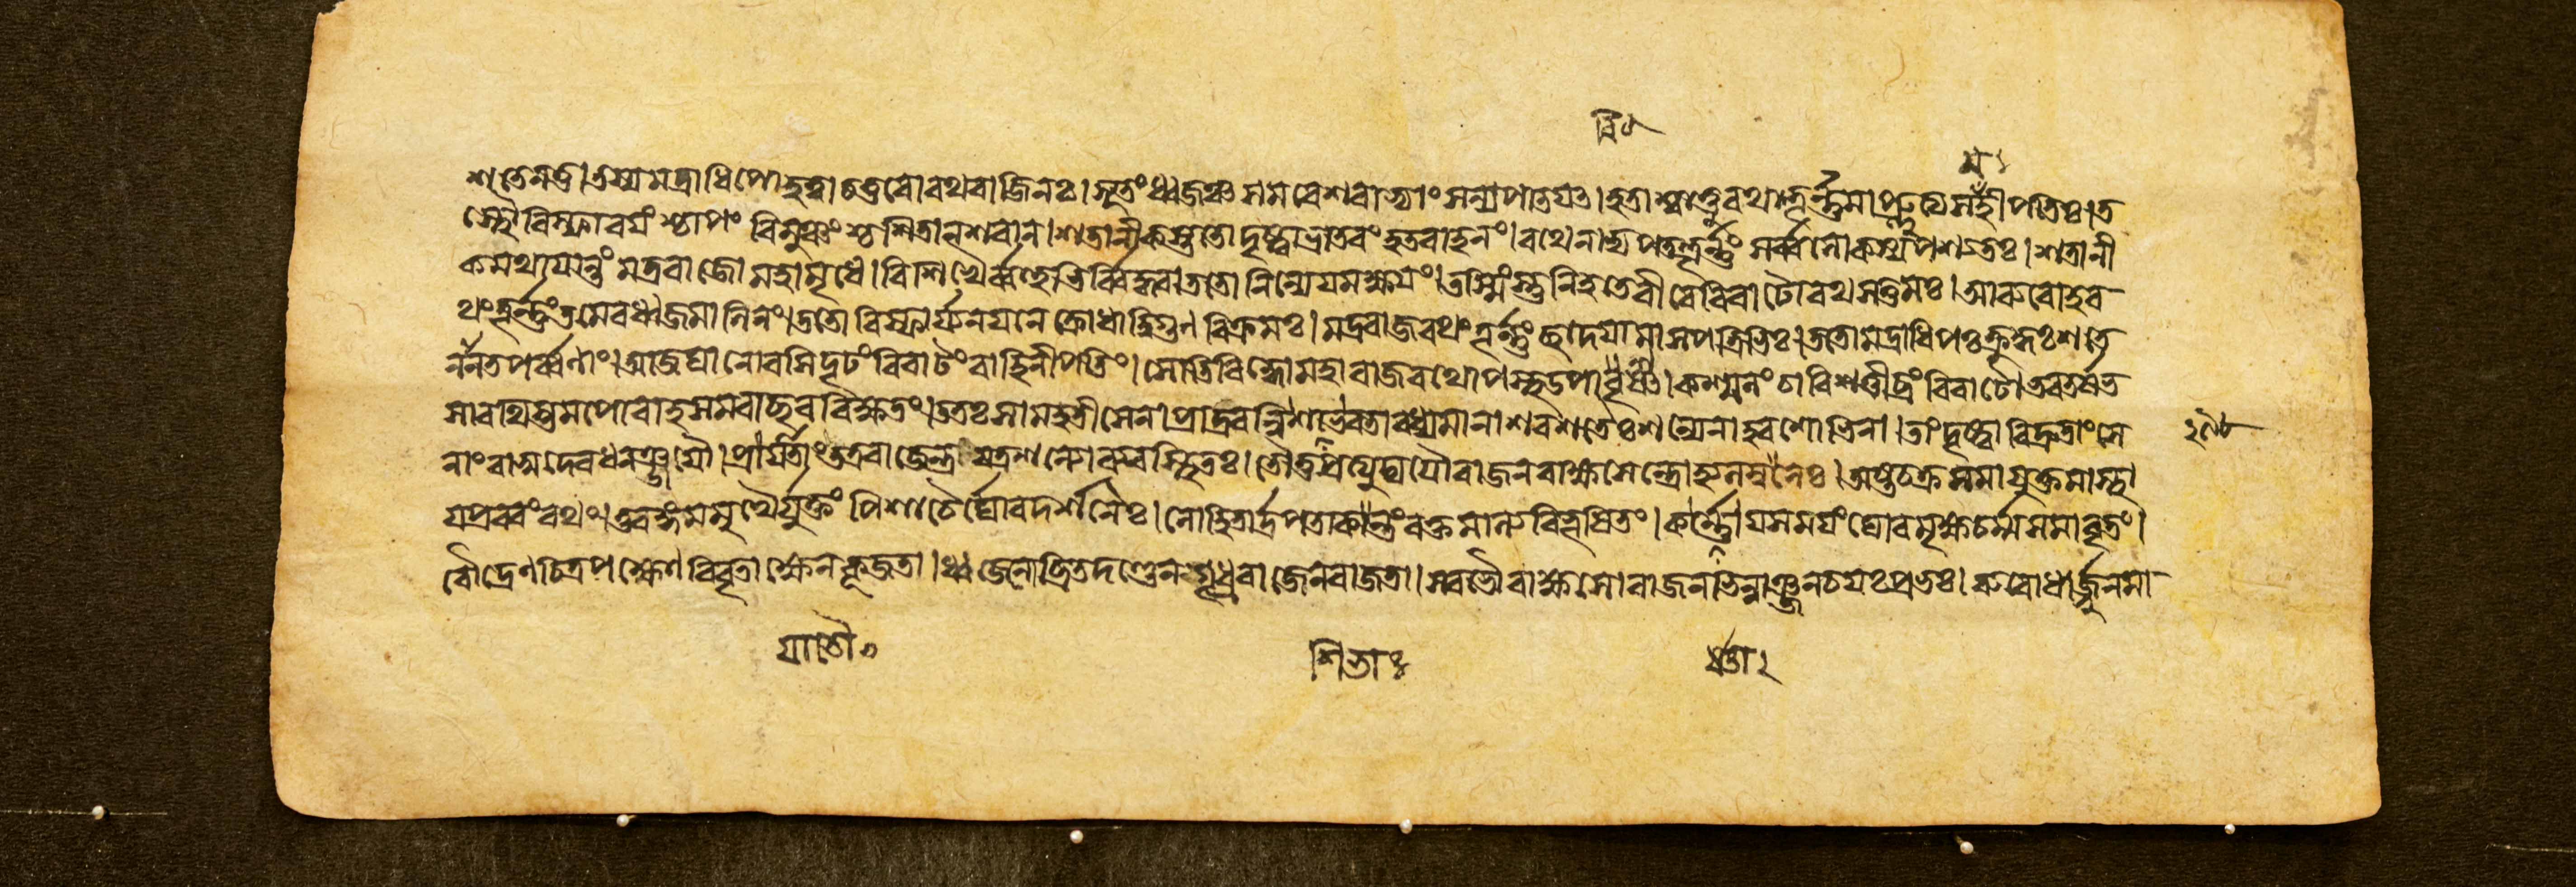 শতেনতু।তস্যমদ্রাধিপোহত্বাচতুরোরথবাজিনঃ।সূতংধ্বজঞ্চসমরেশরাভ্যাংসন্ন্যপাতয়ৎ।হতাশ্বাত্তুরথাত্তূর্ণ্ণমাপ্লুত্যমহীপতিঃ।ত
স্থৌবিস্ফারয়ংশ্চাপং বিমুঞ্চংশ্চশিতান্‌শরান্‌।শতানীকস্ততোদৃষ্ট্বাভ্রাতরংহতবাহনং।রথেনাভ্যপতত্তূর্ণ্ণং সর্ব্বলোকস্যপশ্যতঃ।শতানী
কমথায়ান্তং মদ্ররাজো মহামৃধে।বিশিখৈর্ব্বহুভির্ব্বিদ্ধ্বাততোনিন্যেযমক্ষয়ং।তস্মিংস্তুনিহতেবীরেবিরাটোরথসত্তমঃ।আরুরোহর
থংতূর্ণ্ণংতমেবধ্বজমালিনং।ততোবিস্ফার্য্যনয়নে ক্রোধাদ্দ্বিগুণবিক্রমঃ।মদ্ররাজরথং তূর্ণ্ণং ছাদয়ামাসপত্রিভিঃ।ততোমদ্রাধিপঃক্রুদ্ধঃশতে
নর্নতপর্ব্বণাং।আজঘানোরসিদৃঢ়ং বিরাটংবাহিনীপতিং।সোতিবিদ্ধোমহারাজরথোপস্থউপাবিশৎ।কশ্মলং চাবিশত্তীব্রং বিরাটোভরতর্ষভ
সারথিস্তমপোবাহসমরাচ্ছরবিক্ষতং।ততঃসামহতীসেনাপ্রাদ্রবন্নিশিভারতাবধ্যমানাশরশতৈঃশল্যেনাহবশোভিনা।তাংদৃষ্ট্বাবিদ্রুতাংসে
নাংবাসুদেবধনঞ্জয়ৌ।প্রায়াতাংতত্ররাজেন্দ্র যত্রশল্যোব্যবস্থিতঃ।তৌতুপ্রত্যুদ্যযৌরাজনরাক্ষসেন্দ্রোহ্যলম্বলঃ।অষ্টচক্রসমাযুক্তমাস্থা
যপ্রবরংরথং।তুরঙ্গমমুখৈর্যুক্তং পিশাচৈর্ঘোরদর্শনৈঃ।লোহিতার্দ্রপতাকান্তংরক্তমাল্যবিভূষিতং।কার্ষ্ণায়সময়ংঘোরমৃক্ষচর্ম্মসমাবৃতং।
রৌদ্রেণচিত্রপক্ষেণবিবৃতাক্ষেনকূজতা।ধ্বজেনোচ্ছ্রিতদণ্ডেনগৃধ্ররাজেনরাজতা।সবভৌরাক্ষসোরাজনভিন্নাঞ্জনচয়ঃপ্রভঃ।রুরোধার্জ্জুনমা